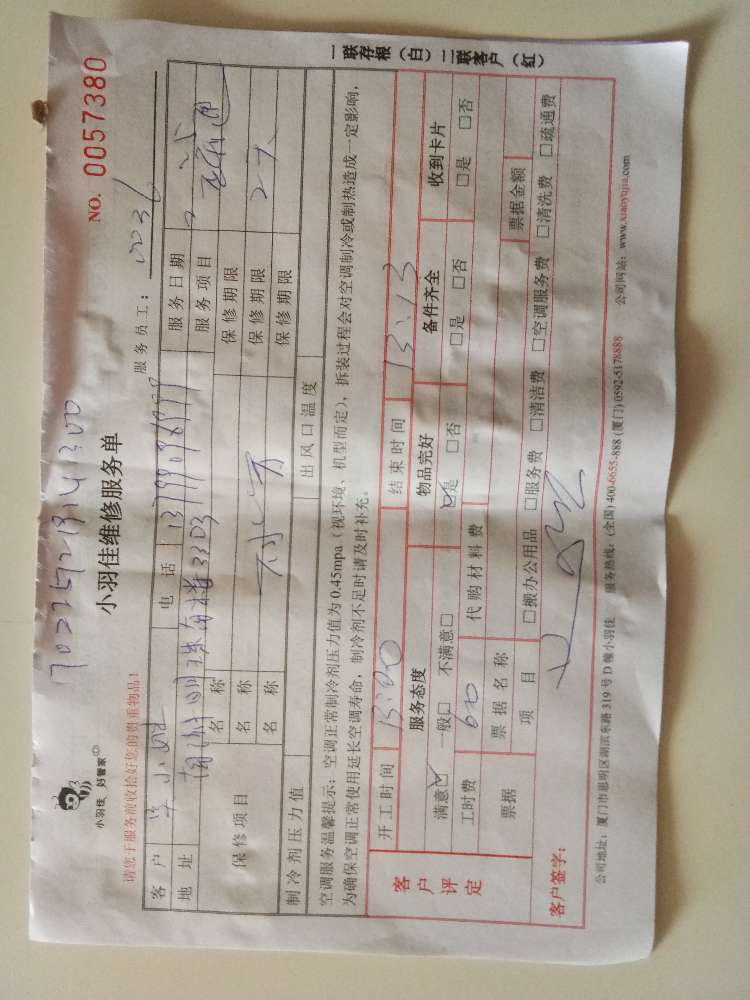 NO. 0057380
小羽佳 好管家
小羽佳维修服务单
请您于服务前收拾好您的贵重物品!
服务员工: 0036
客户 小姐 电话 服务日期
地址 南楼3103 服务项目 疏通
保修项目 名称 保修期限
名称 保修期限
名称 保修期限
制冷剂压力值 出风口温度
空调服务温馨提示: 空调正常制冷剂压力值为0.45mpa(视环境、机型而定), 拆装过程会对空调制冷或制热造成一定影响,
为确保空调正常使用延长空调寿命, 制冷剂不足时请及时补充。
客户评定
开工时间 13:00 结束时间 13:13
服务态度 物品完好 备件齐全 收到卡片
满意□ 一般□ 不满意□ □是 □否 □是 □否 □是 □否
工时费 600 代购材料费
票据 票据名称 票据金额
项目 □搬办公用品 □服务费 □清洁费 □空调服务费 □清洗费 □疏通费
客户签字:
公司地址: 厦门市思明区湖滨东路319号D幢小羽佳 服务热线: (全国)400-6655-888 (厦门)0592-5178888 公司网站: www.xiaoyujia.com
一联存根(白) 二联客户(红)